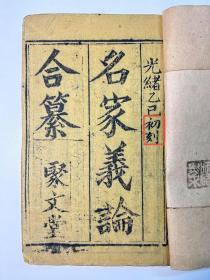 光緒乙巳初刻
名家義論
合纂
聚文堂